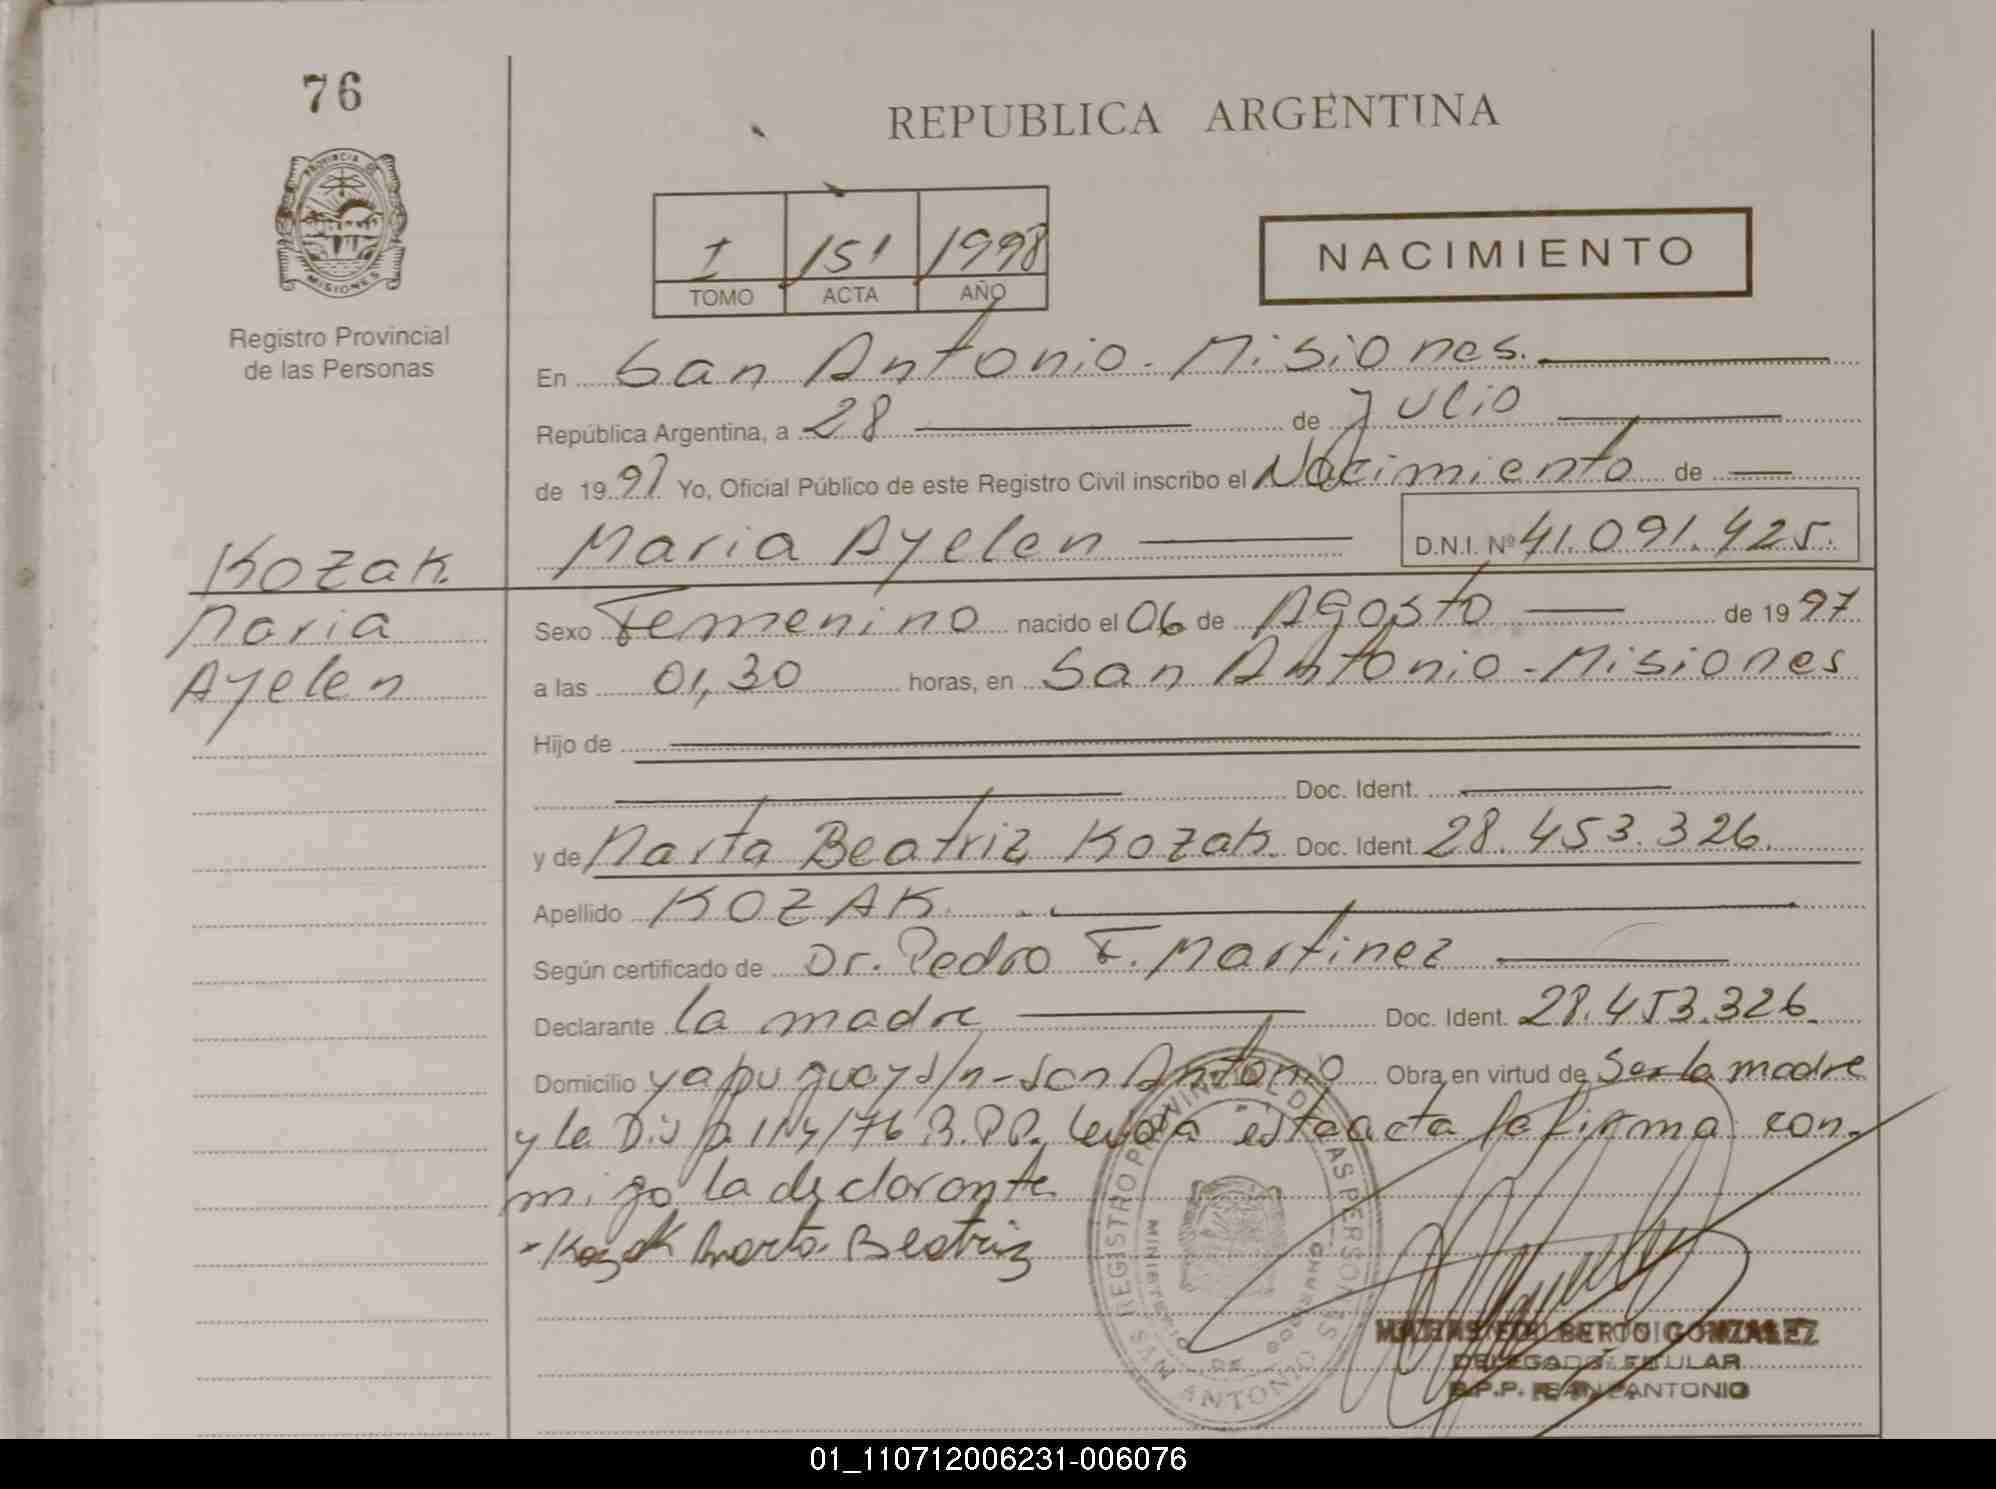 76
REPUBLICA ARGENTINA
PROVINCIA DE
MISIONES
I 151 1998
TOMO ACTA AÑO
NACIMIENTO
Registro Provincial
de las Personas
En San Antonio - Misiones.
República Argentina, a 28 de Julio
de 1997 Yo, Oficial Público de este Registro Civil inscribo el Nacimiento de
Maria Ayelen D.N.I. Nº 41.091.425.
Kozak
Maria
Ayelen
Sexo Femenino nacido el 06 de Agosto de 1997
a las 01,30 horas, en San Antonio - Misiones
Hijo de
Doc. Ident.
y de Marta Beatriz Kozak. Doc. Ident. 28.453.326.
Apellido KOZAK.
Según certificado de Dr. Pedro F. Martinez
Declarante la madre Doc. Ident. 28.453.326.
Domicilio yapuguay s/n - San Antonio Obra en virtud de Ser la madre
y la Disp. 114/76 R.P.P. leida esta acta la firma con-
migo la declarante
- Kozak Marta Beatriz
REGISTRO PROVINCIAL DE LAS PERSONAS
MINISTERIO DE GOBIERNO
SAN ANTONIO
MATIAS EDILBERTO GONZALEZ
DELEGADO TITULAR
R.P.P. SAN ANTONIO
01_110712006231-006076